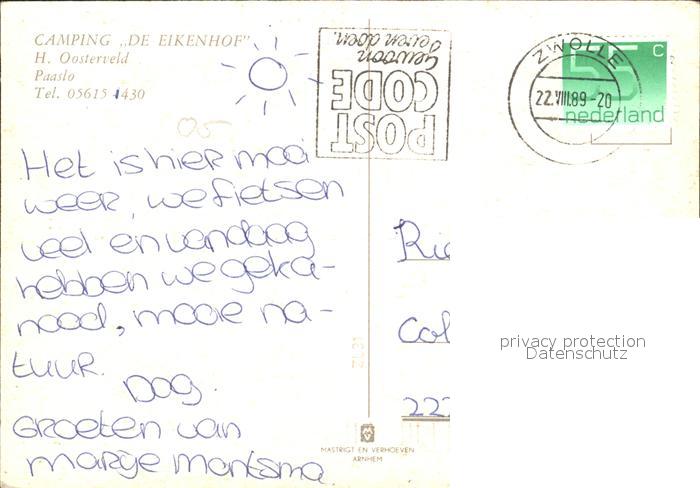 CAMPING „DE EIKENHOF"
H. Oosterveld
Paaslo
Tel. 05615 - 1430
05
Het is hier mooi
weer, we fietsen
veel en vandaag
hebben we geka-
nood, mooie na-
tuur.
Dag.
Groeten van
Marije Montsma.
POST
CODE
Gewoon
even doen.
ZWOLLE
22.VIII.89-20
55 C
nederland
Ric
Col
222
privacy protection
Datenschutz
MASTRIGT EN VERHOEVEN
ARNHEM